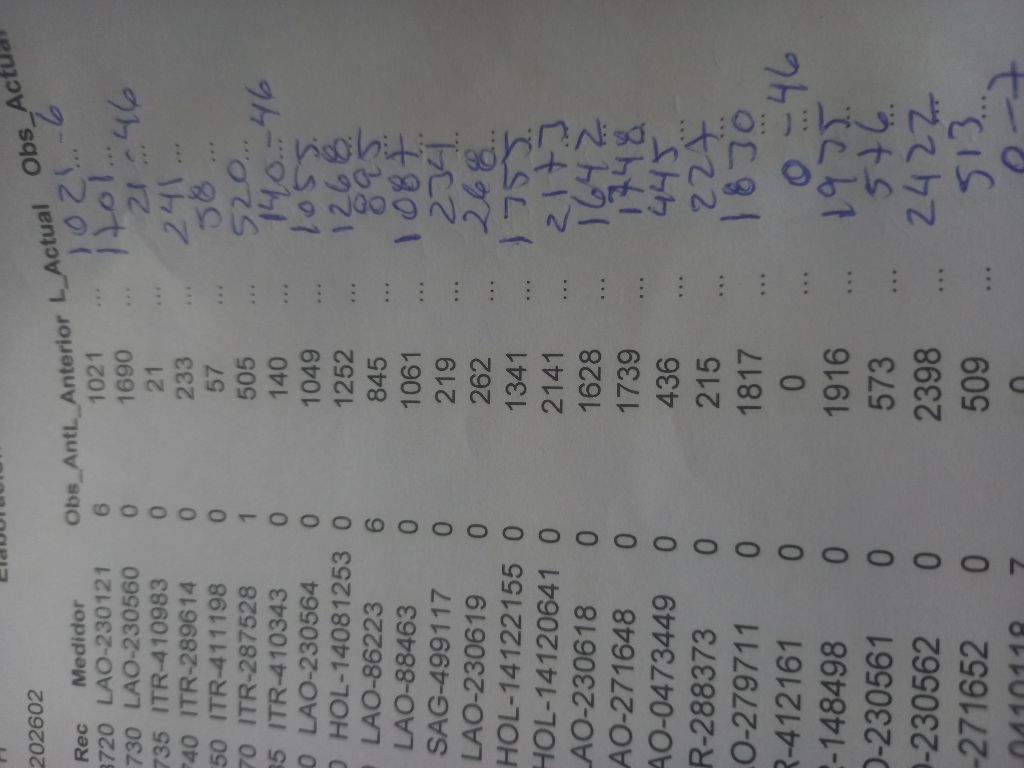 202602
Rec Medidor Obs_Ant L_Anterior L_Actual Obs_Actual
3720 LAO-230121 6 1021 ... 1021 -6
730 LAO-230560 0 1690 ... 1701 ...
735 ITR-410983 0 21 ... 21 -46
740 ITR-289614 0 233 ... 241 ...
50 ITR-411198 0 57 ... 58 ...
70 ITR-287528 1 505 ... 520 ...
35 ITR-410343 0 140 ... 140 -46
0 LAO-230564 0 1049 ... 1055 ...
HOL-14081253 0 1252 ... 1268 ...
LAO-86223 6 845 ...
LAO-88463 0 1061 ... 1087 ...
SAG-499117 0 219 ... 234 ...
LAO-230619 0 262 ... 268 ...
HOL-14122155 0 1341 ... 1355 ...
HOL-14120641 0 2141 ... 2173 ...
AO-230618 0 1628 ... 1642 ...
AO-271648 0 1739 ... 1748 ...
AO-0473449 0 436 ... 445 ...
R-288373 0 215 ... 227 ...
O-279711 0 1817 ... 1830 ...
R-412161 0 0 ... 0 -46
-148498 0 1916 ... 1935 ...
-230561 0 573 ... 576 ...
-230562 0 2398 ... 2422 ...
-271652 0 509 ... 513 ...
0410118 7 0 0 -7